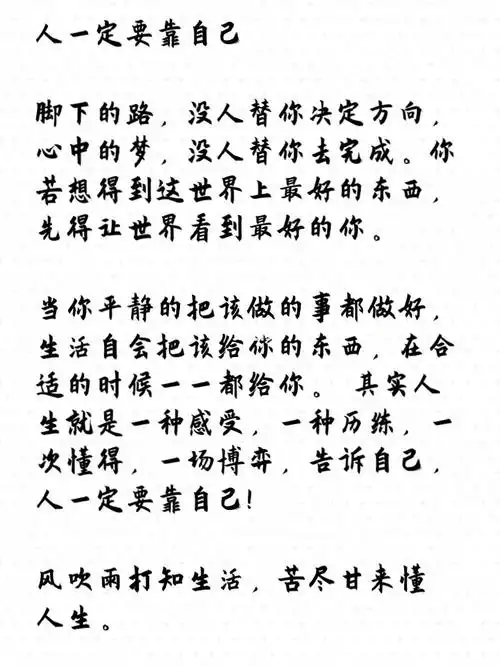 人一定要靠自己
脚下的路，没人替你决定方向，
心中的梦，没人替你去完成。你
若想得到这世界上最好的东西，
先得让世界看到最好的你。
当你平静的把该做的事都做好，
生活自会把该给你的东西，在合
适的时候一一都给你。 其实人
生就是一种感受，一种历练，一
次懂得，一场博弈，告诉自己，
人一定要靠自己!
风吹雨打知生活，苦尽甘来懂
人生。